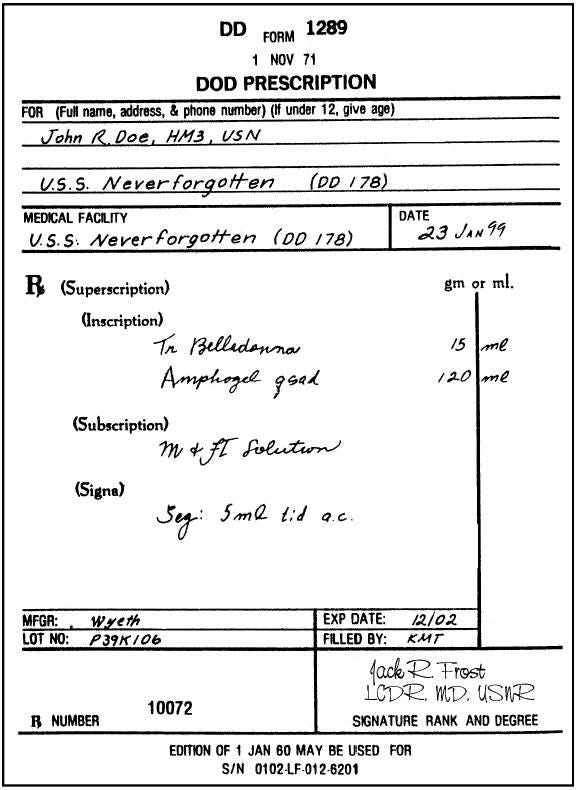 DD FORM 1289
1 NOV 71
DOD PRESCRIPTION
FOR (Full name, address, & phone number) (If under 12, give age)
John R. Doe, HM3, USN
U.S.S. Neverforgotten (DD 178)
MEDICAL FACILITY
U.S.S. Neverforgotten (DD 178)
DATE
23 JAN 99
℞ (Superscription) gm or ml.
(Inscription)
Tr Belladonna 15 ml
Amphogel qsad 120 ml
(Subscription)
M & FT Solution
(Signa)
Sig: 5ml tid a.c.
MFGR: Wyeth EXP DATE: 12/02
LOT NO: P39K106 FILLED BY: KMT
Jack R. Frost
LCDR, MD, USNR
10072
℞ NUMBER SIGNATURE RANK AND DEGREE
EDITION OF 1 JAN 60 MAY BE USED FOR
S/N 0102-LF-012-6201